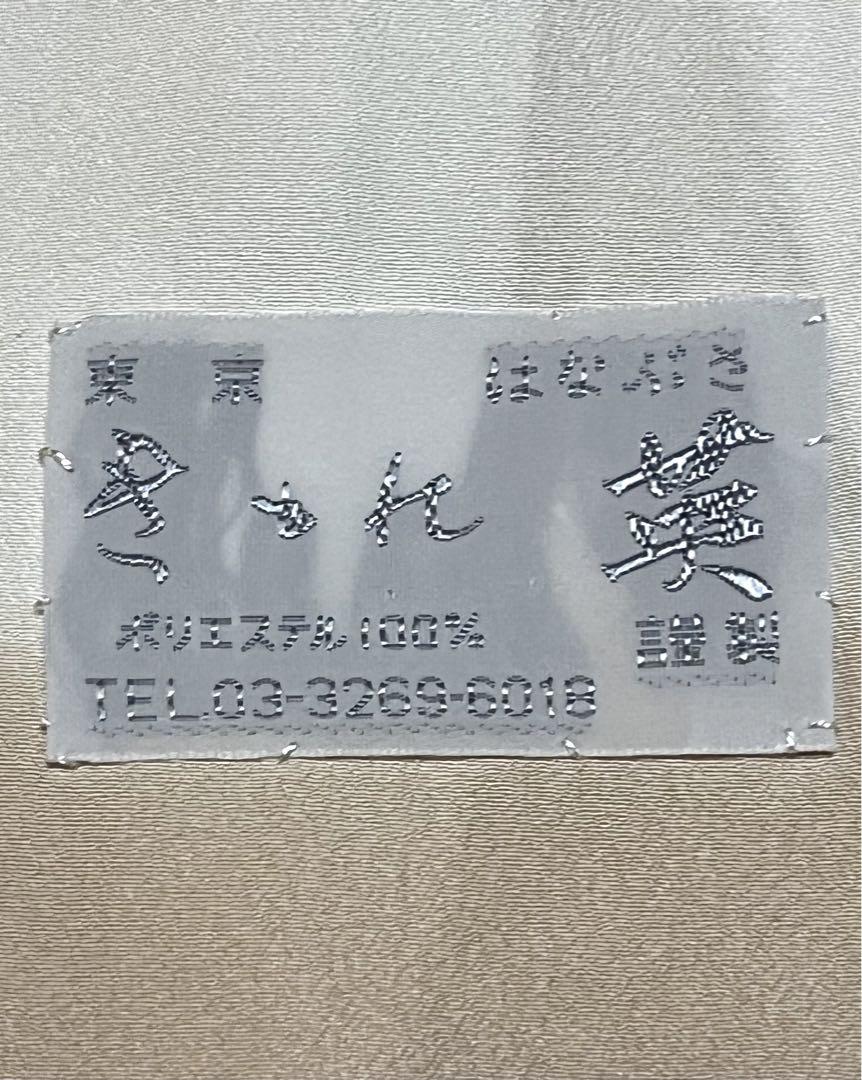 東京 はなぶさ
英
ポリエステル100% 謹製
TEL.03-3269-6018